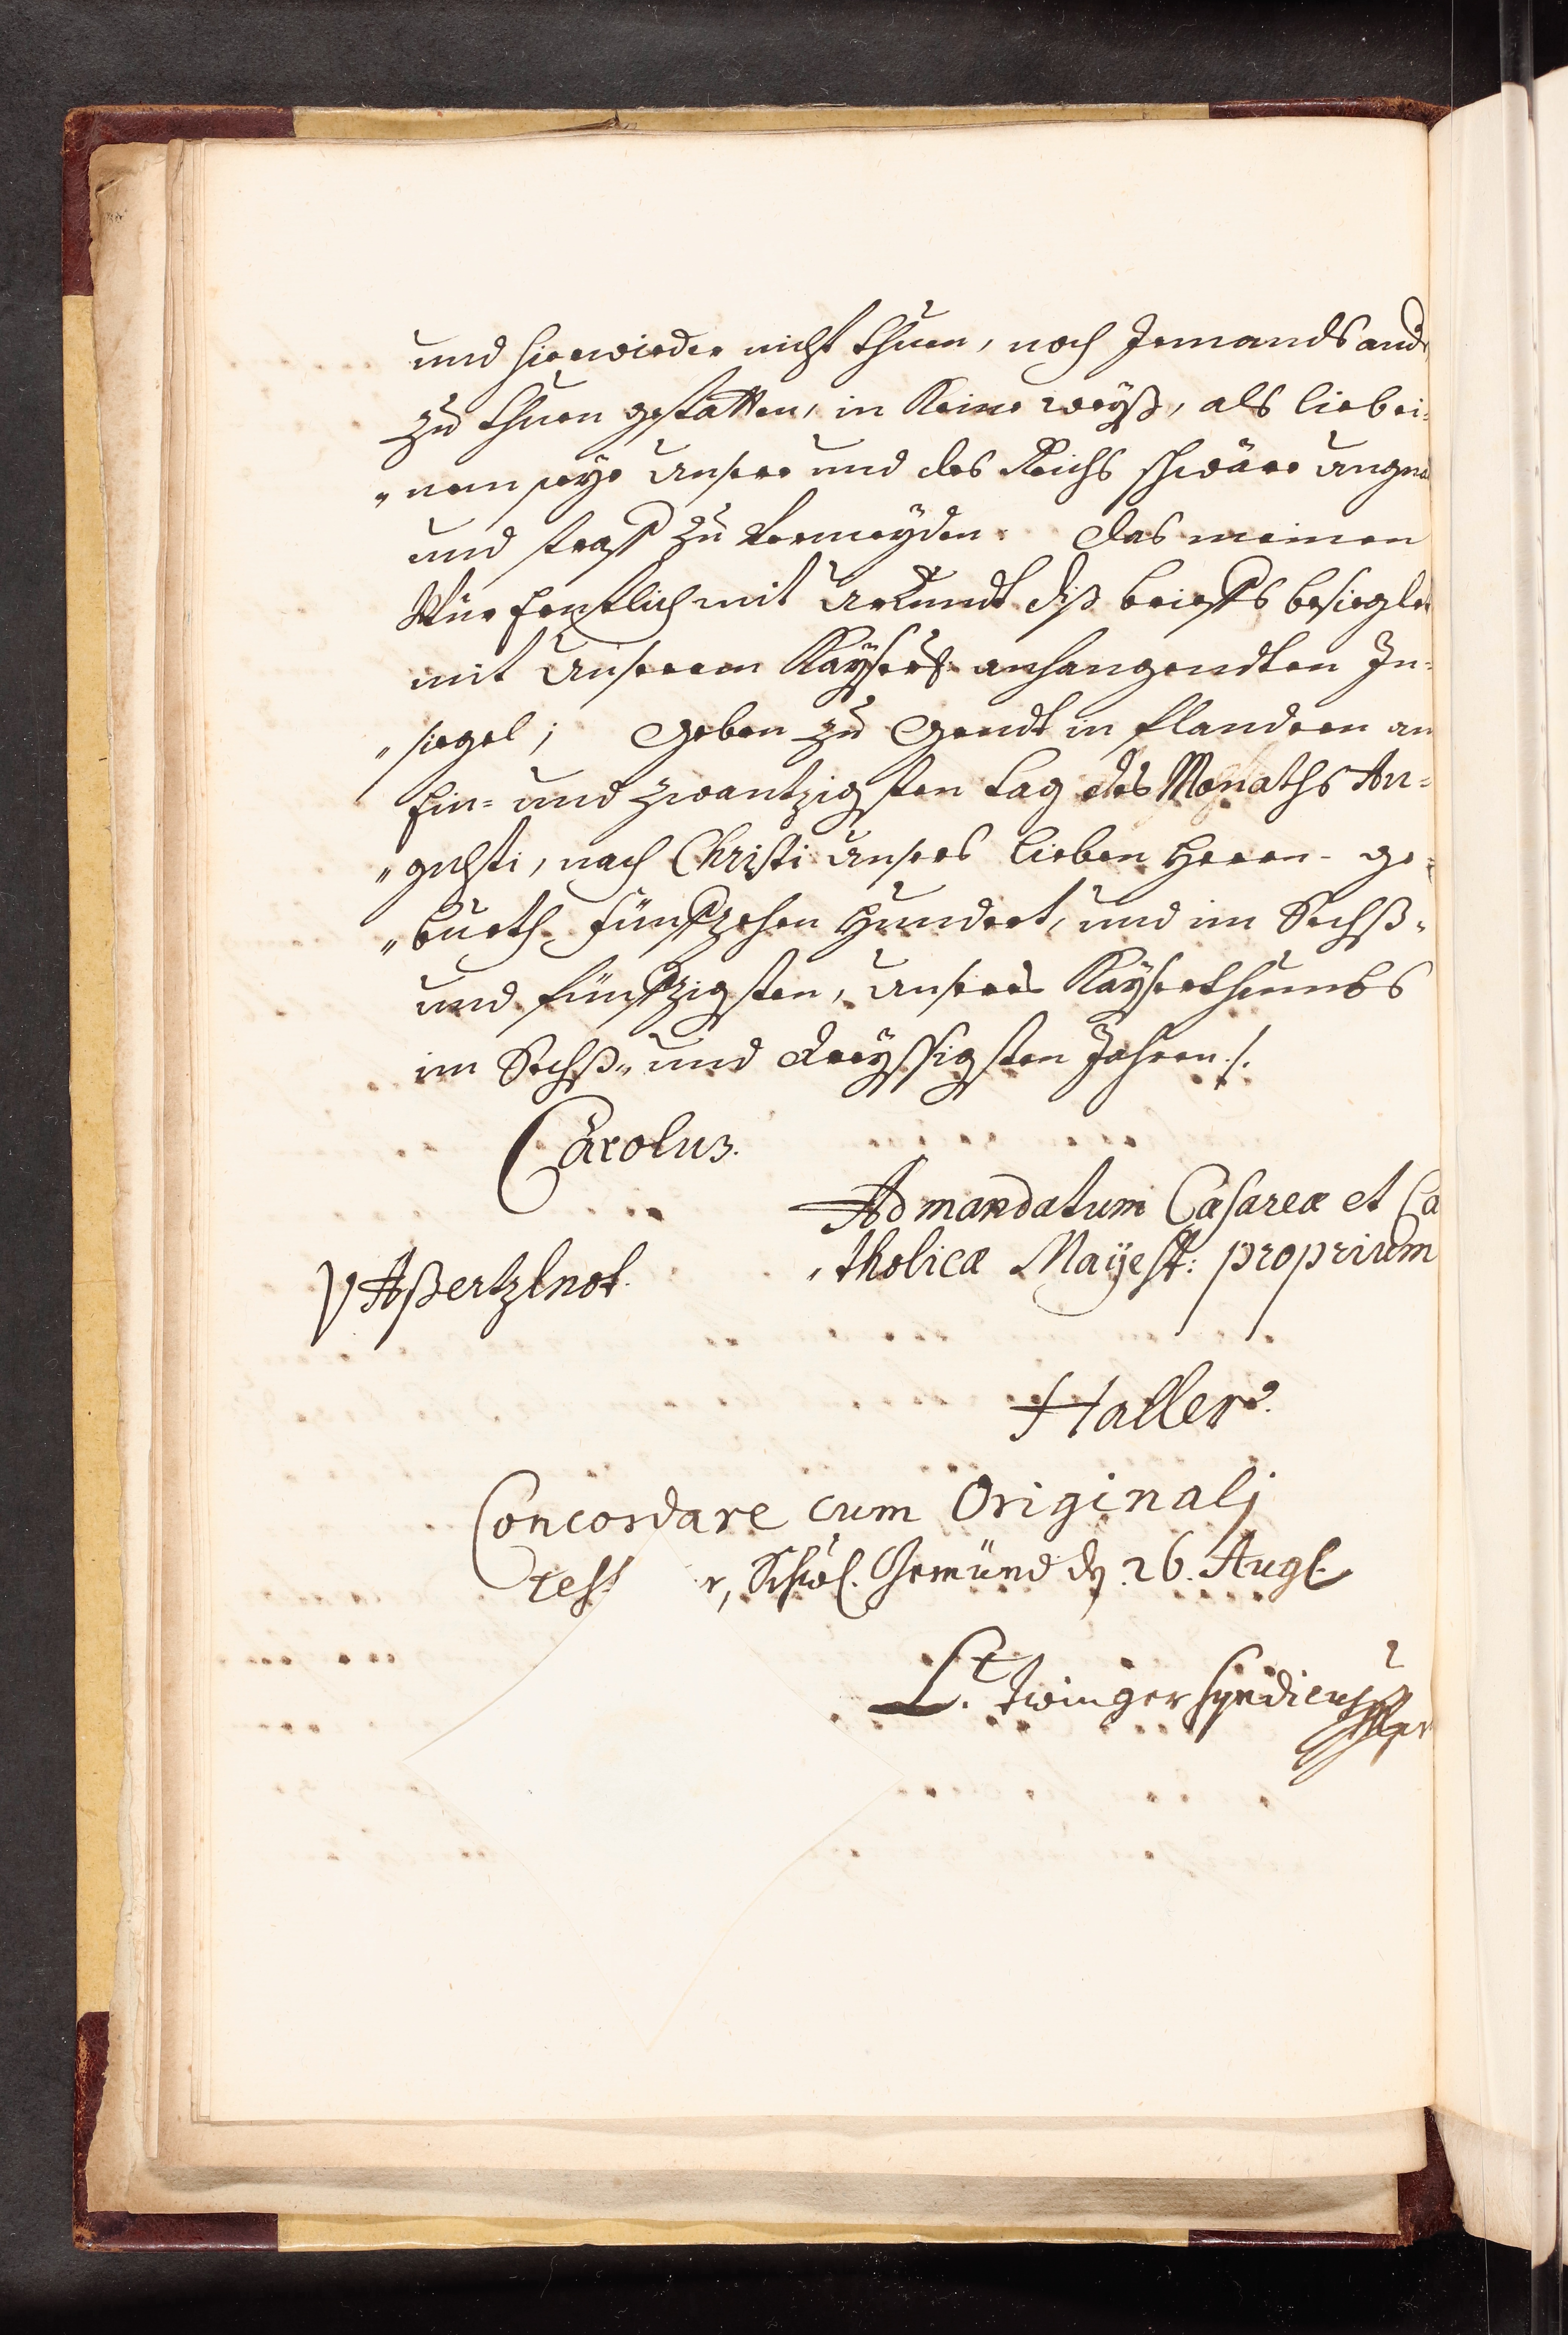 und hierwieder nicht thuen, noch Jemands and
zu thuen gestatten, in Keine weyß, als lieb ei-
„nem seye Unsere und des Reichs schwäre Ungna
und straff zu Vermeyden. Das meinen
Wür Ernstlich mit Urkundt diß brieffs besieglet
mit Unserem Kayserl: anhangendten In-
„siegel; Geben zu Gendt in flandern an
Ein- und zwantzigsten tag des Monaths Au-
„gusti, nach Christi Unsers lieben Herrn ge-
„burth fünffzehen Hundert, und im Sechß-
und fünffzigsten, Unsers Kayserthumbs
im Sechß- und dreyssigsten Jahren ./.
Carolus.
Ad mandatum Cæsareæ et Ca
„tholicæ Mayest: proprium
Haller.
Concordare cum Originali
test r, Schwl. Gemünd d. 26. Aug.
Lt. Zwinger Syndicus